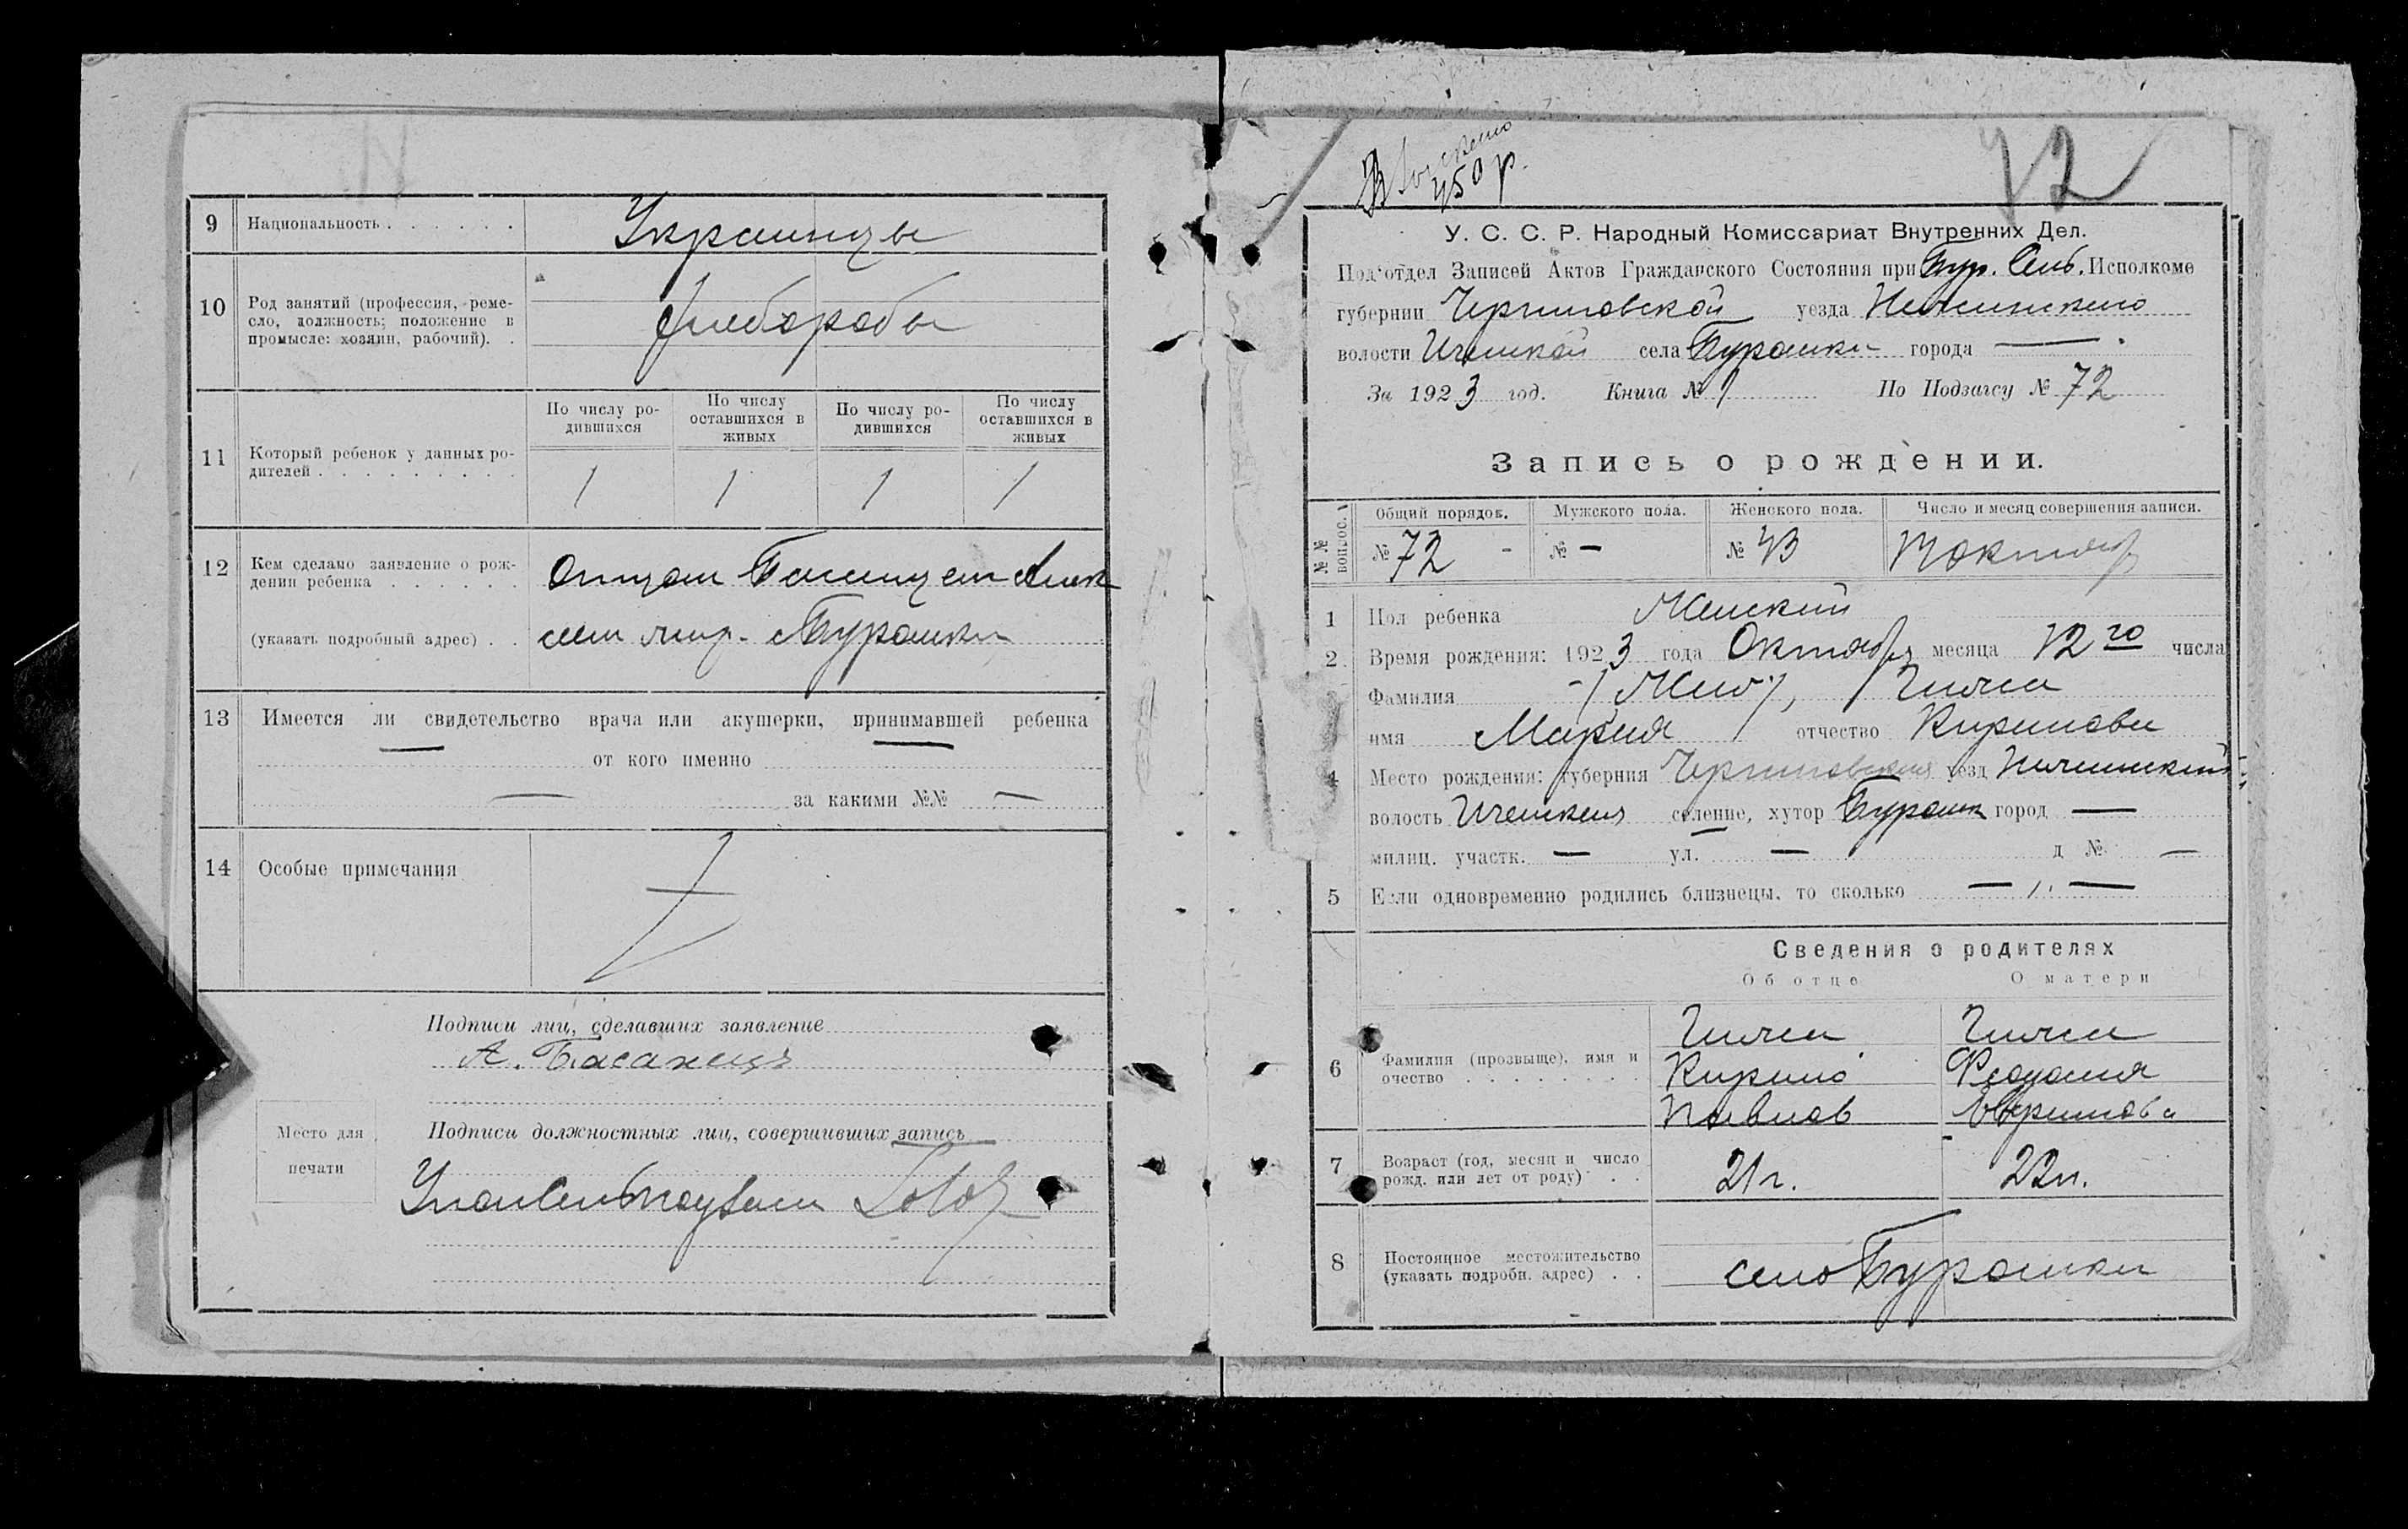 9 Национальность . . . . . . Украинцы
10 Род занятий (профессия, реме-
сло, должность; положение в
промысле: хозяин, рабочий). . хлеборобы
11 Который ребенок у данных ро-
дителей . . . . . . . . .
По числу ро-
дившихся
По числу
оставшихся в
живых
По числу ро-
дившихся
По числу
оставшихся в
живых
1 1 1 1
12 Кем сделано заявление о рож-
дении ребенка . . . . . .
(указать подробный адрес) . .
13 Имеется ли свидетельство врача или акушерки, принимавшей ребенка
— —
от кого именно
— за какими №№ —
14 Особые примечания
Подписи лиц, сделавших заявление
А. Басанець
Место для
печати
Подписи должностных лиц, совершивших запись
450 р.
72
У. С. С. Р. Народный Комиссариат Внутренних Дел.
Подотдел Записей Актов Гражданского Состояния при Бур. Сель. Исполкоме
губернии Черниговской уезда Нежинского
волости села города —
За 1923 год. Книга № 1 По Подзагсу № 72
Запись о рождении.
№ № вопрос.
Общий порядов. Мужского пола. Женского пола. Число и месяц совершения записи.
№ 72 - № — № 43
1 Пол ребенка Женский
2 Время рождения: 1923 года Октября месяца 12го числа
Фамилия
имя Мария отчество Кирилова
4 Место рождения: губерния Черниговская уезд
волость селение, хутор город —
милиц. участк. — ул. — д № —
5 Если одновременно родились близнецы, то сколько — —
Сведения о родителях
Об отце О матери
6 Фамилия (прозвыще), имя и
очество . . . . . . . .
Кирило
Павлов
Феодосия
7 Возраст (год, месяц и число
рожд. или лет от роду) . . 21 г. 22 л.
8 Постоянное местожительство
(указать подробн. адрес) . . село